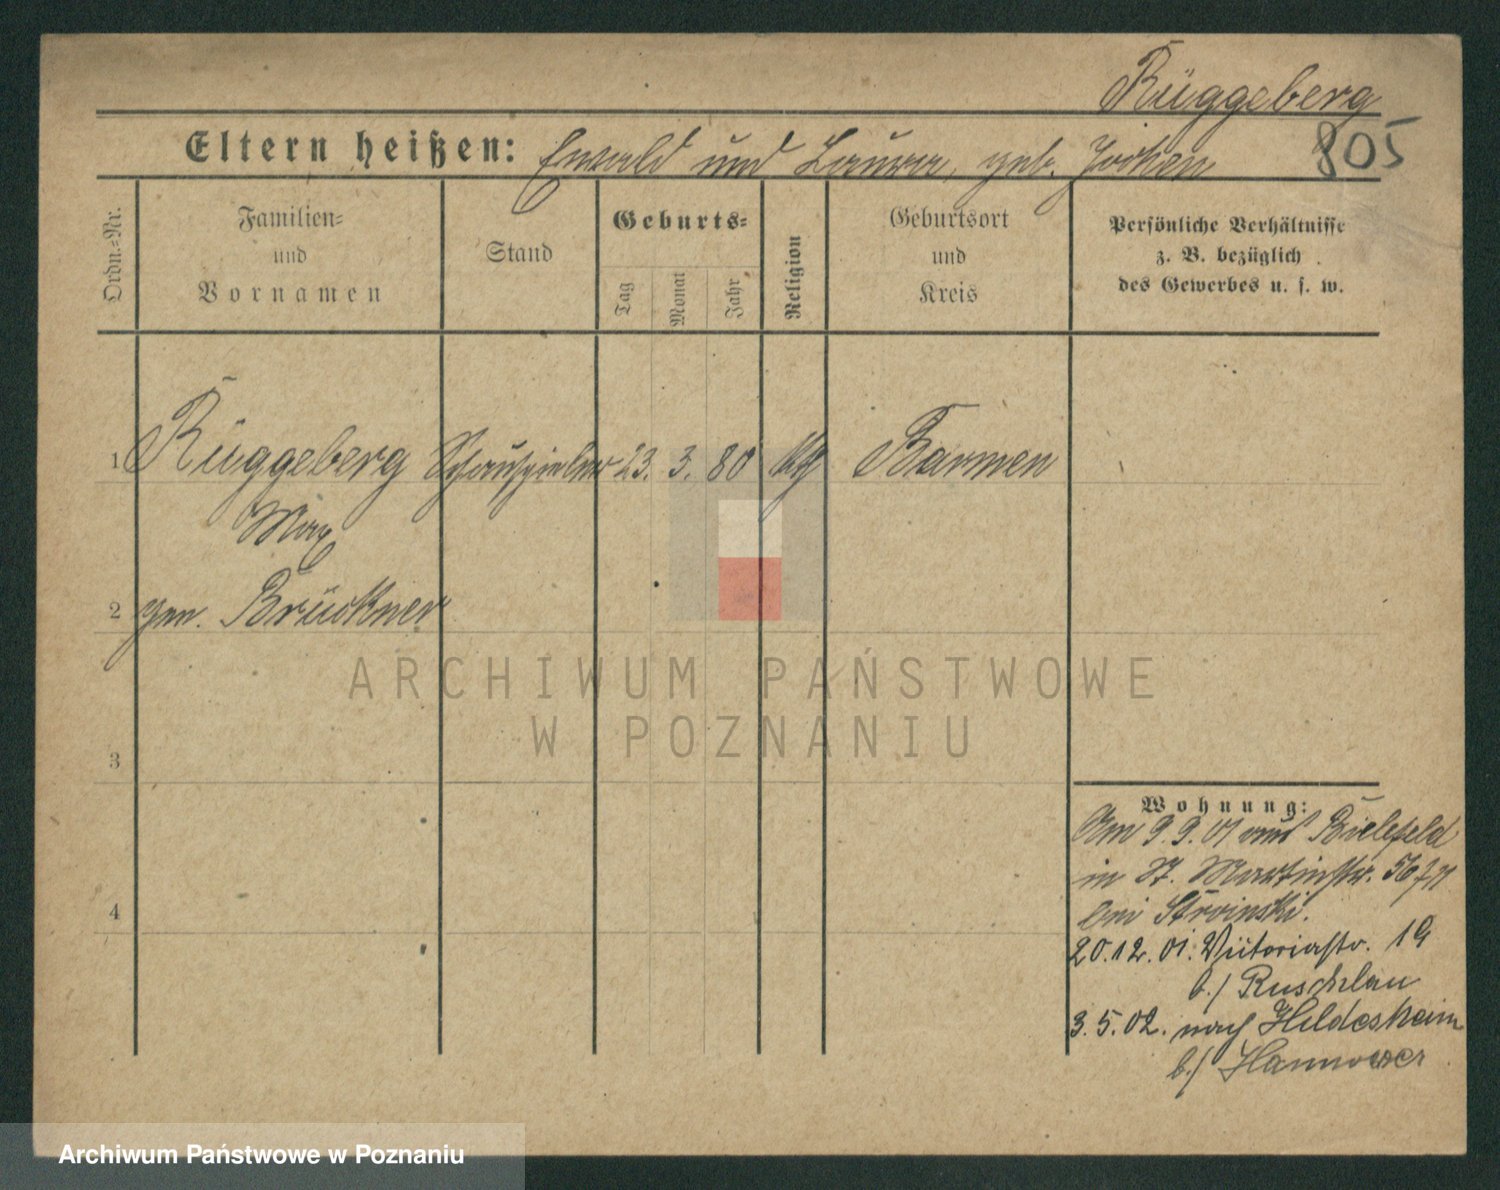 Rüggeberg
805
Eltern heißen: Ewald und Laura, geb. Jocken
Ordn.=Nr.
Familien=
und
Vornamen
Stand
Geburts=
Tag
Monat
Jahr
Religion
Geburtsort
und
Kreis
Persönliche Verhältnisse
z. B. bezüglich
des Gewerbes u. s. w.
1 Rüggeberg Schauspieler 23. 3. 80 Barmen
Max
2 gen. Brückner
3
4
Wohnung:
Am 9.9.01 aus Bielefeld
in St. Martinstr. 56
bei Stroinski.
20.12.01. Viktoriastr. 19
b./ Ruschlau
3.5.02. nach Hildesheim
b./ Hannover
ARCHIWUM PAŃSTWOWE
W POZNANIU
Archiwum Państwowe w Poznaniu